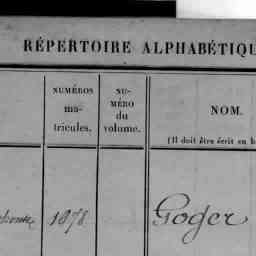 RÉPERTOIRE ALPHABÉTIQU
NUMÉROS
ma-
tricules.
NU-
MÉRO
du
volume.
NOM.
(Il doit être écrit en b
1878
Goger